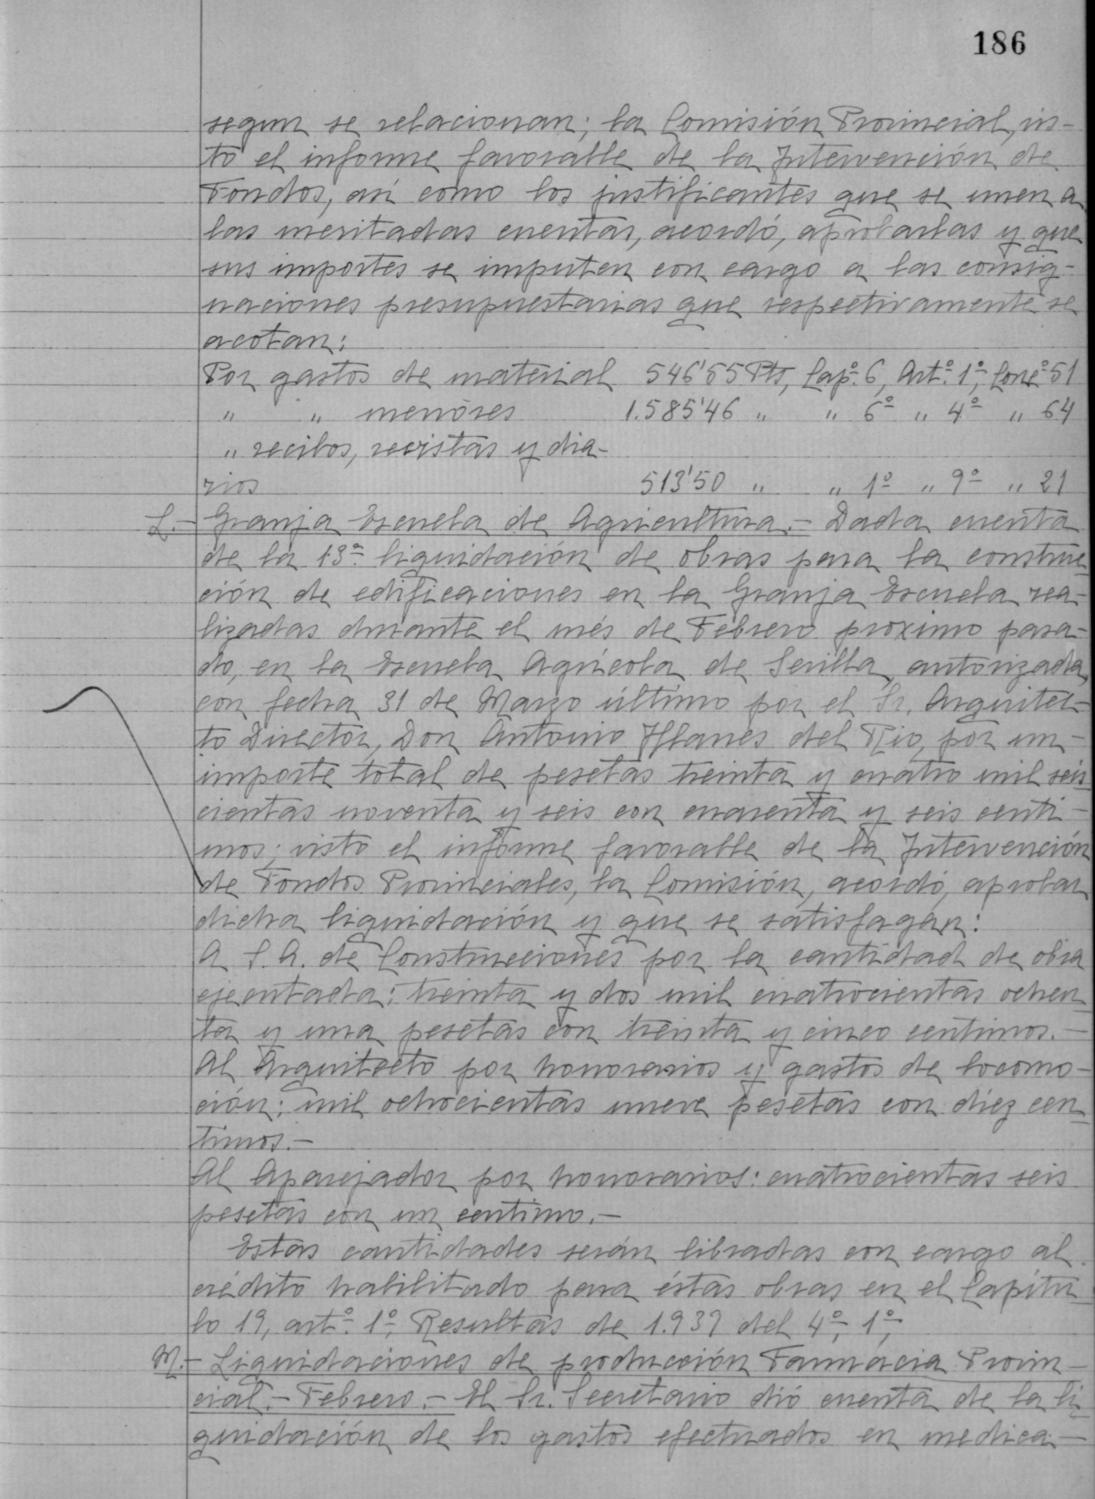 186
segun se relacionan; la Comisión Provincial, vis-
to el informe favorable de la Intervención de
Fondos, asi como los justificantes que se unen a
las meritadas cuentas, acordó, aprobarlas y que
sus importes se imputen con cargo a las consig-
naciones presupuestarias que respectivamente se
acotan:
Por gastos de material 546'55 Pts, Capº. 6, Artº. 1º, Concº 51
" " menores 1.585'46 " " 6º " 4º " 64
" recibos, revistas y dia-
rios 513'50 " " 1º " 9º " 21
L.- Granja Escuela de Agricultura.- Dada cuenta
de la 13ª liquidación de obras para la construc-
ción de edificaciones en la Granja Escuela rea-
lizadas durante el més de Febrero proximo pasa-
do, en la Escuela Agricola de Sevilla, autorizada,
con fecha 31 de Marzo último por el Sr. Arquitec-
to Director, Don Antonio Illanes del Rio, por un-
importe total de pesetas treinta y cuatro mil seis
cientas noventa y seis con cuarenta y seis centi-
mos; visto el informe favorable de la Intervención
de Fondos Provinciales, la Comisión, acordó, aprobar
dicha liquidación y que se satisfagan:
A S.A. de Construcciones por la cantidad de obra
ejecutada: treinta y dos mil cuatrocientas ochen
ta y una pesetas con treinta y cinco centimos.-
Al Arquitecto por honorarios y gastos de locomo-
ción: mil ochocientas nueve pesetas con diéz cen
timos.-
Al Aparejador por honorarios: cuatrocientas seis
pesetas con un centimo.-
Estas cantidades serán libradas con cargo al
crédito habilitado para éstas obras en el Capitu
lo 19, artº. 1º, Resultas de 1.937 del 4º, 1º,
M.- Liquidaciones de producción Farmacia Provin-
cial.- Febrero.- El Sr. Secretario dió cuenta de la li
quidación de los gastos efectuados en medica-